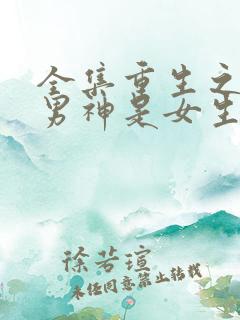 全集重生之
男神是女生
徐若瑄
未经同意禁止转载